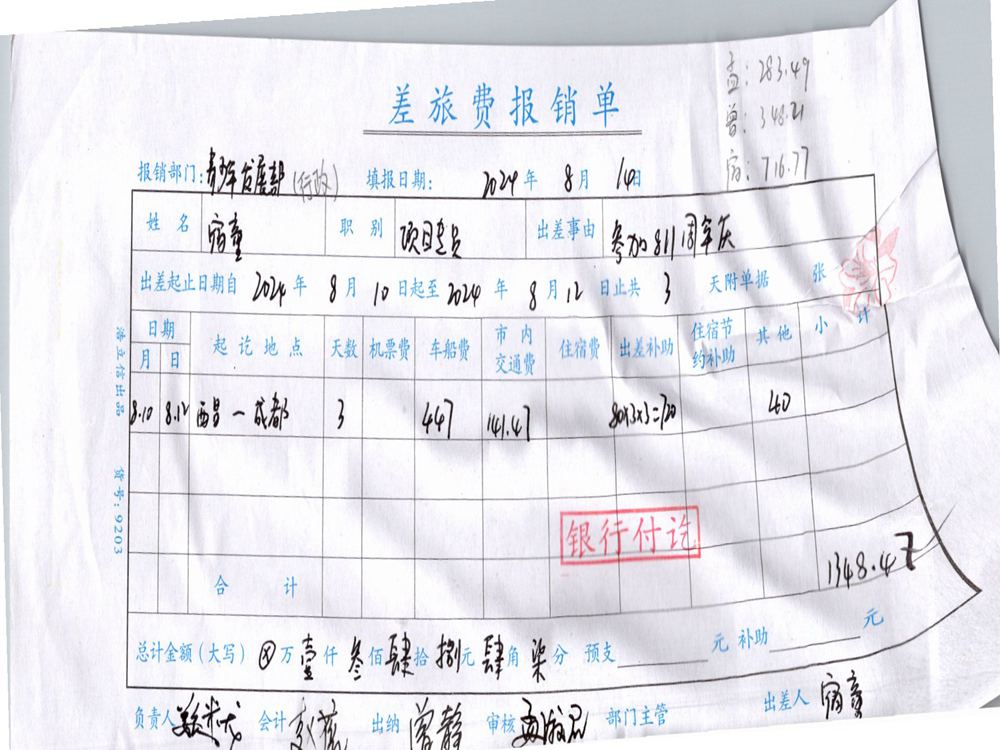 孟:283.49
曾:348.21
宿:716.77
差旅费报销单
报销部门:青少年发展部(行政) 填报日期: 2024年 8月 14日
姓名 宿童 职别 项目专员 出差事由 参加811周年庆
出差起止日期自 2024年 8月 10日起至 2024年 8月 12日止共 3 天附单据 张
日期 起讫地点 天数 机票费 车船费 市内交通费 住宿费 出差补助 住宿节约补助 其他 小计
月 日
8.10 8.12 西昌—成都 3 447 141.47 80×3×3=720 40
银行付讫
合计 1348.47
总计金额(大写) ⊗万壹仟叁佰肆拾捌元肆角柒分 预支 元 补助 元
负责人 会计 出纳 曾静 审核 部门主管 出差人 宿童
浩立信出品 货号:9203